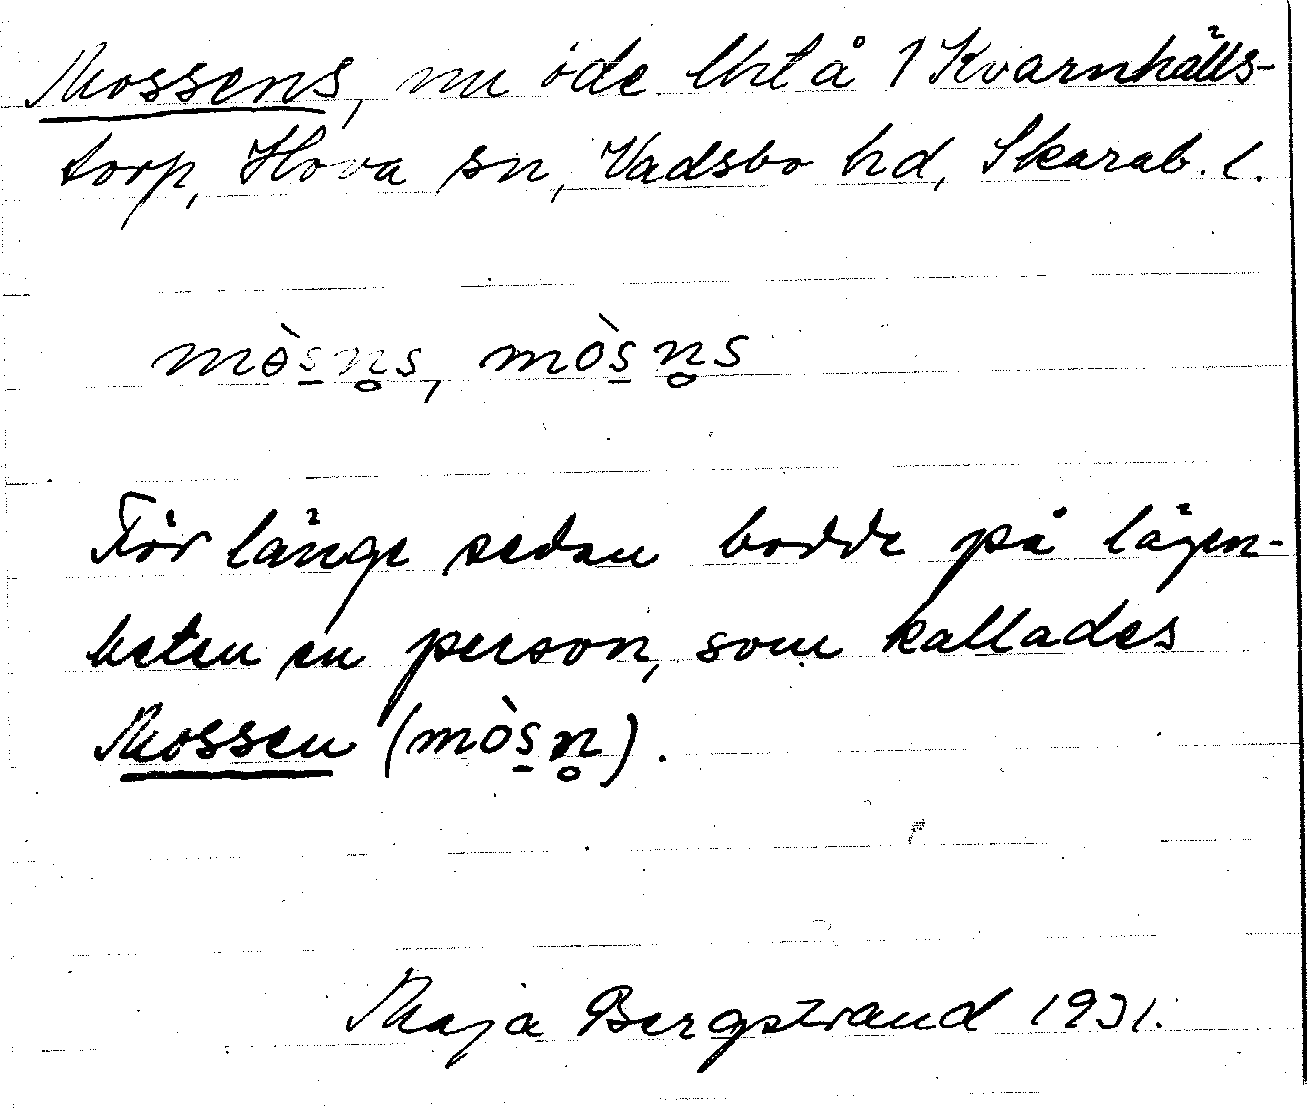 Mossens, nu öde lht å 1 Kvarnhälls-
torp, Hova sn, Vadsbo hd, Skarab. l.
mɵ̀s̲n̥s, mòs̲n̥s
För länge sedan bodde på lägen-
heten en person, som kallades
Mossen (mòs̲n̥).
Maja Bergstrand 1931.